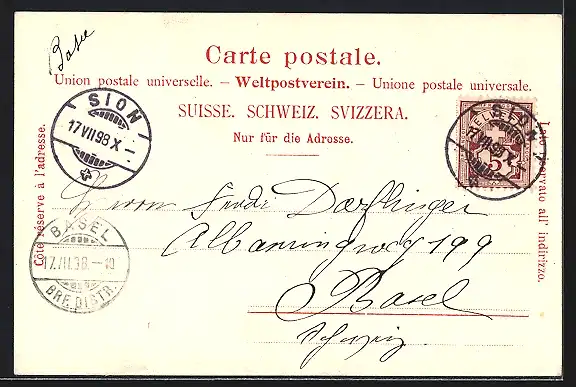 Basel
Carte postale.
Union postale universelle. – Weltpostverein. – Unione postale universale.
SUISSE. SCHWEIZ. SVIZZERA.
Nur für die Adresse.
Côté réservé à l'adresse.
Lato riservato all' indirizzo.
SION
17 VII 98 X
SION
17 VII 98 X
5
BASEL
17.VII.98.–10
BRF. DISTR.
Herrn Ferd. Daeflinger
Albanringweg 199
Basel
Schweiz.